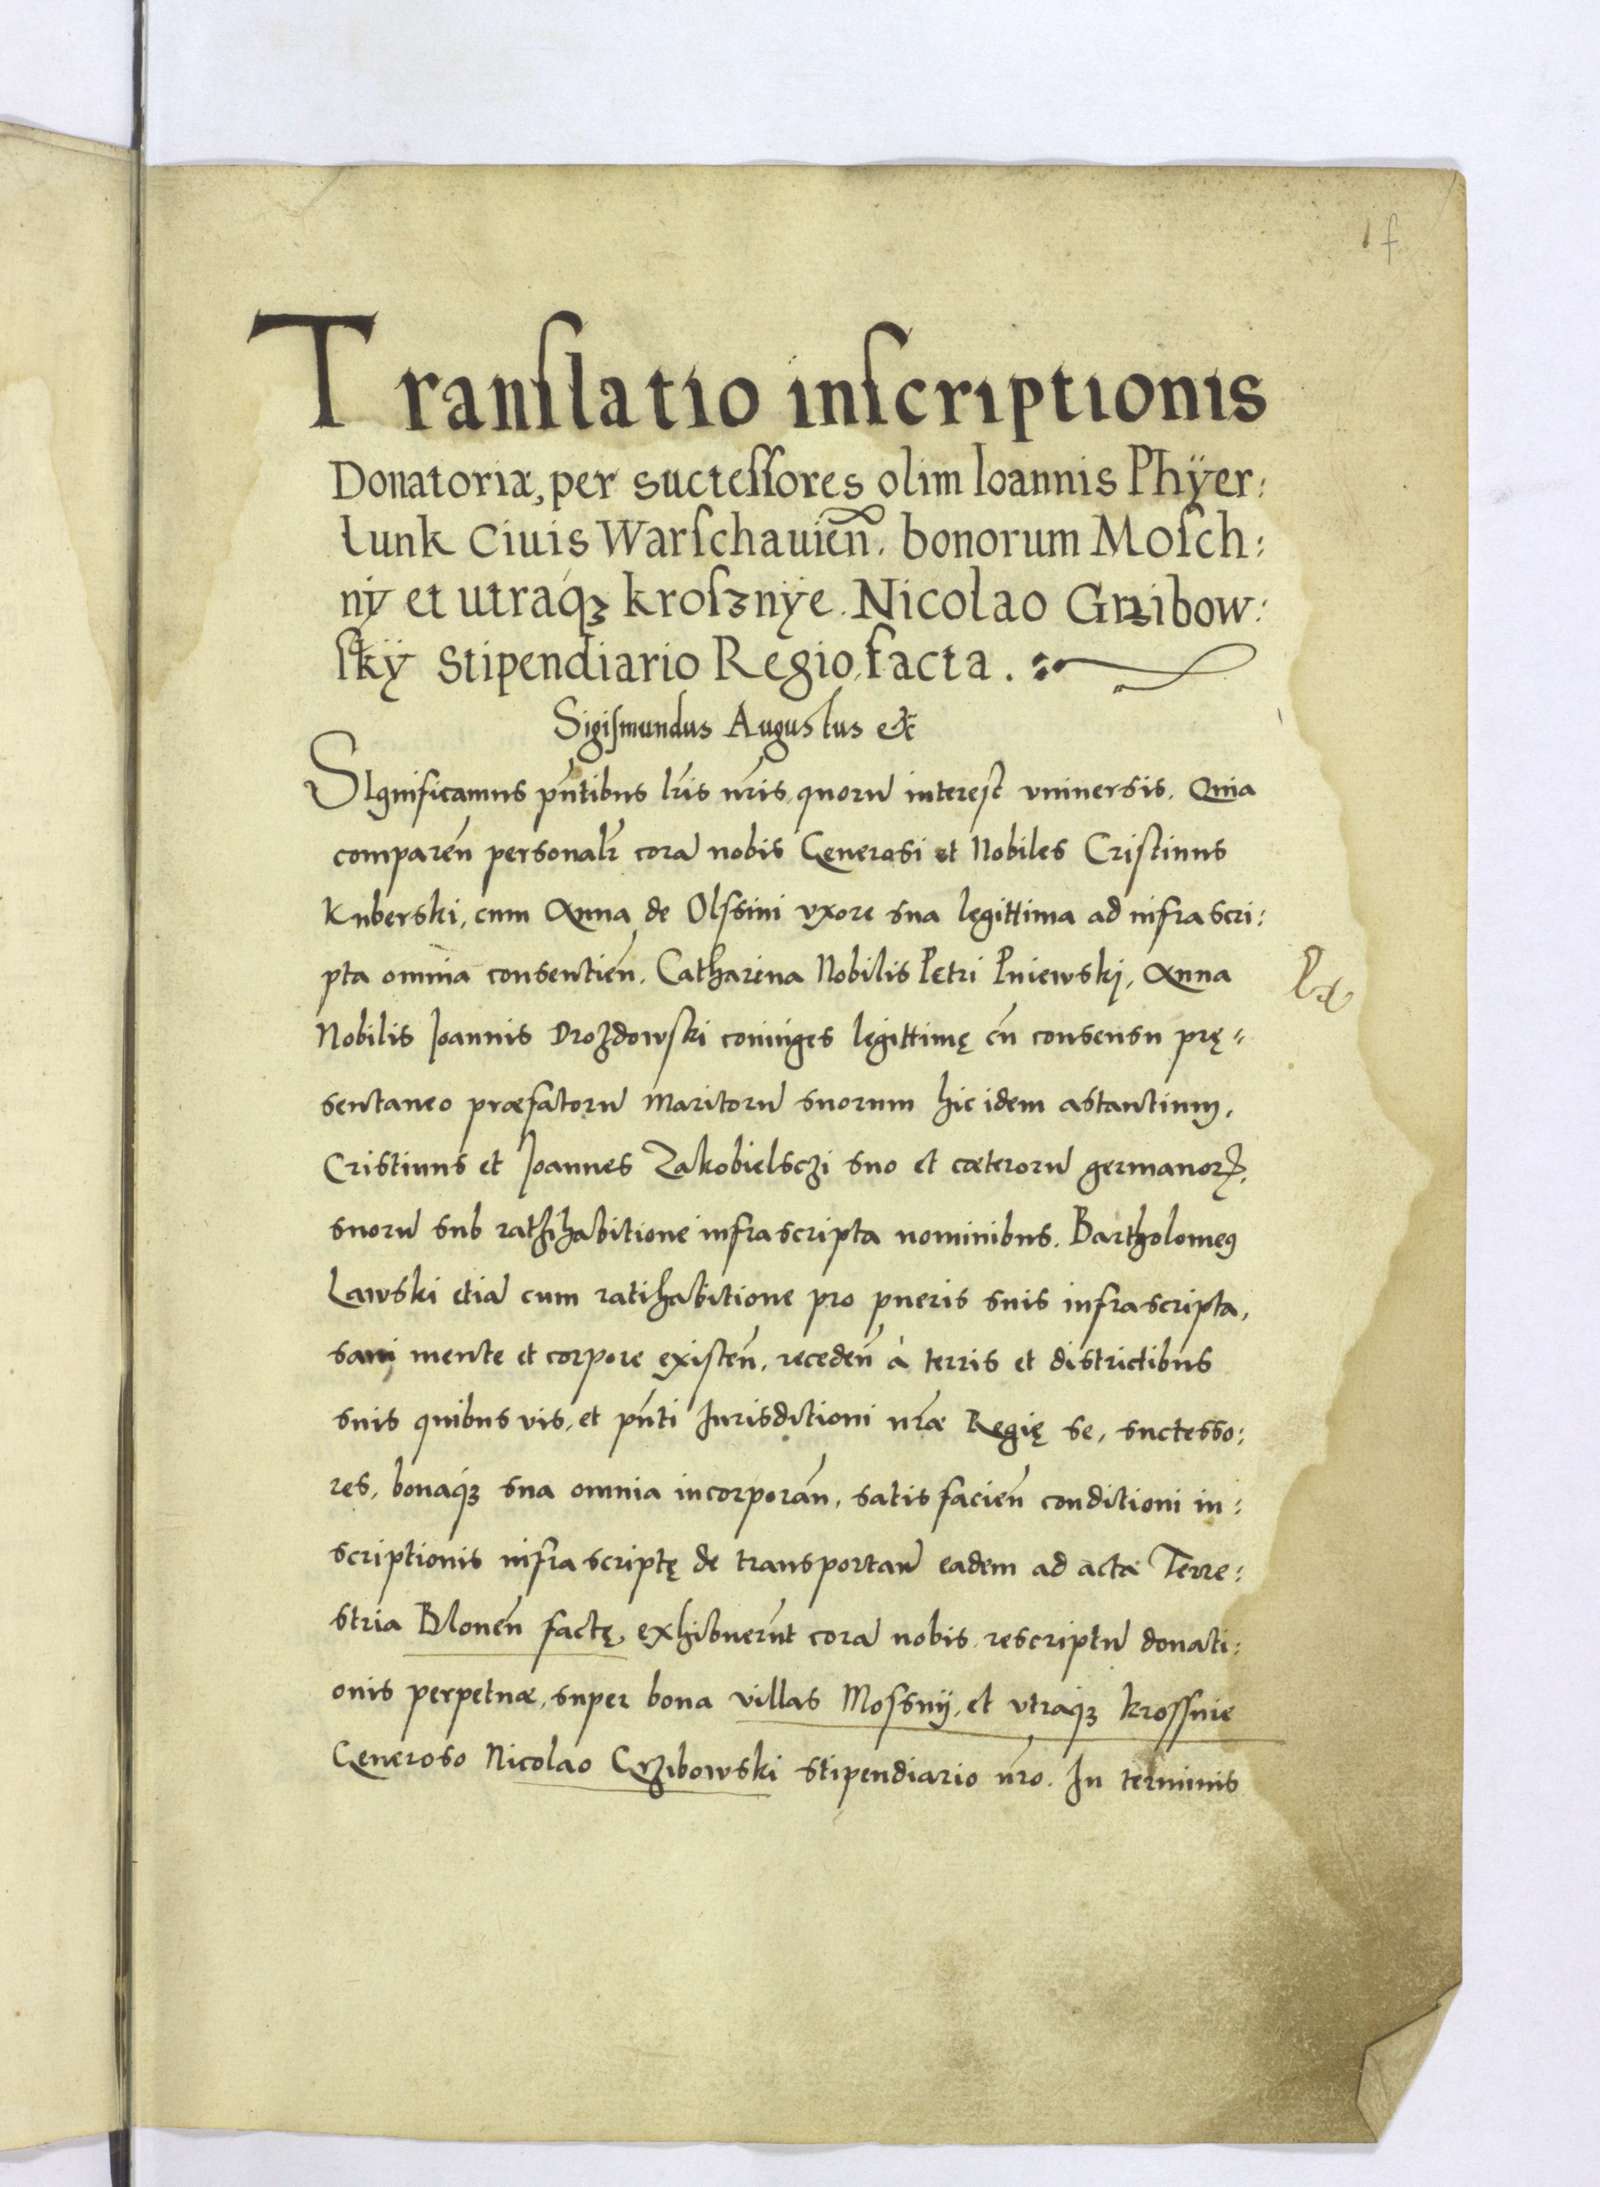 1 f
Tranſlatio inſcriptionis
Donatoriæ, per suctesſores olim Ioannis Phÿer:
lunk Ciuis Warſchauien̄. bonorum Moſch:
nÿ et utraq́ꝫ kroſznÿe. Nicolao Grzibow:
ſkÿ Stipendiario Regio, facta.
Sigiſmundus Augustus etc̄
SIgnificamus pn̄tibus lr̄is nr̄is, quorū interest vniuersis. Quia
comparen̄ personalr̄ corā nobis Generosi et Nobiles Cristinus
Kuberski, cum Anna de Olssini vxore sua legittima ad infra scri:
pta omnia consentien̄. Catharina Nobilis Petri Pniewski, Anna
Nobilis Joannis Drozdowski coniuges legittimę cū consensu prę=
sentaneo præfatorū maritorū suorum hic idem astantium,
Cristinus et Joannes Zakobielsczi suo et cæterorū germanorꝝ.
suorū sub rathihabitione infra scripta nominibus. Bartholomeꝰ
Lawski etiā cum ratihabitione pro pueris suis infra scripta,
sani mente et corpore existen̄, receden̄ à terris et districtibus
suis quibus vis, et pn̄ti Iurisditioni nr̄æ Regię se, suctesso:
res, bonaq́ꝫ sua omnia incorporan̄, satis facien̄ conditioni in:
scriptionis infra scriptę de transportan̄ eadem ad acta Terre:
stria Blonen̄ factę, exhibuerūt corā nobis rescriptū donati:
onis perpetuæ, super bona villas Mossnij, et vtraq́ꝫ krossnie
Generoso Nicolao Grzibowski stipendiario nr̄o. In terminis